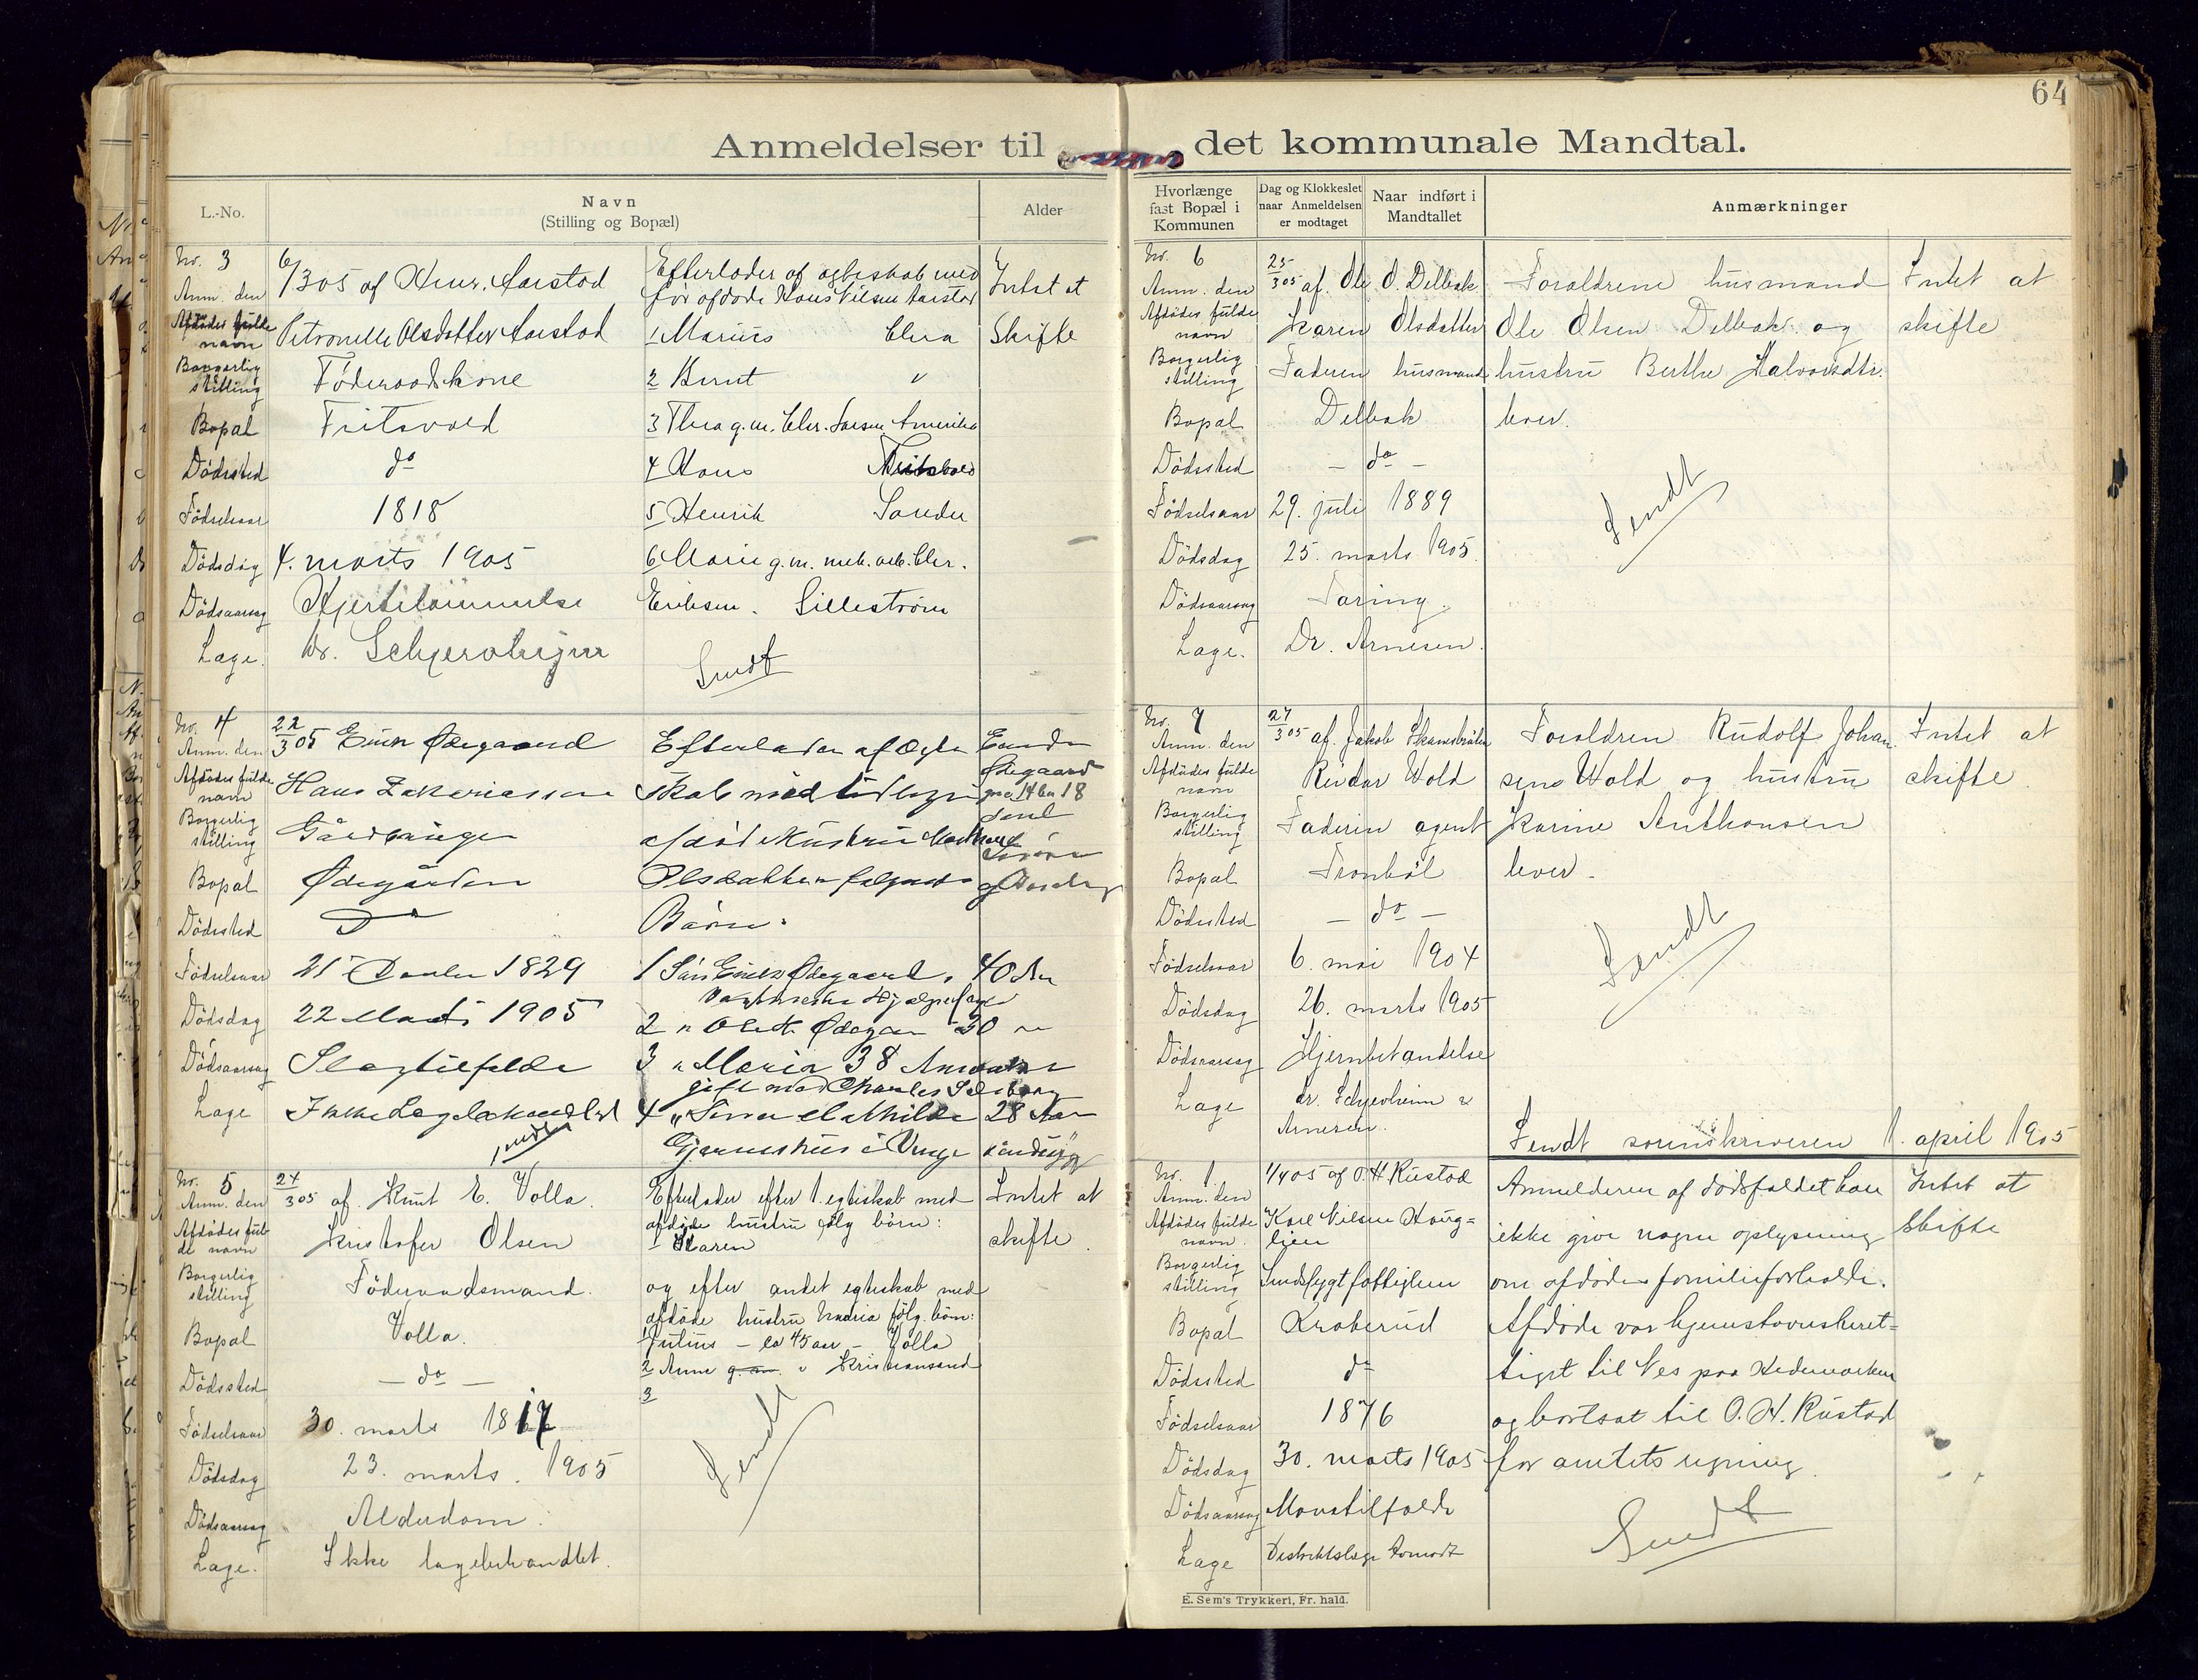 64
Anmeldelser til det kommunale Mandtal.
L.-No.
Navn
(Stilling og Bopæl)
Alder
Hvorlænge
fast Bopæl i
Kommunen
Dag og Klokkeslet
naar Anmeldelsen
er modtaget
Naar indført i
Mandtallet
Anmærkninger
No. 3
Anm. den 6/3 05 af Henr. Aarstad
Afdødes fulde
navn Petronelle Olsdatter Aarstad
Borgerlig
stilling Føderaadskone
Bopæl Fritsvold
Dødssted do
Fødselsaar 1818
Dødsdag 4. marts 1905
Dødsaarsag Hjertelammelse
Læge. Dr.
Efterlader af ægteskab med
før afdøde Hans Nilsen Aarstad
1 Marius
2 Bernt
3 Thea g.m. Chr. Larsen Amerika
4 Hans
5 Henrik Sander
6 Marie g.m. mek. arb. Chr.
Eriksen. Lillestrøm
Sendt
Intet at
Skifte
No. 4
Anm. den 22/3 05 Ødegaard
Afdødes fulde
navn Hans Zakariassen
Borgerlig
stilling
Bopæl Ødegården
Dødssted Do
Fødselsaar 1829
Dødsdag 22 1905
Dødsaarsag Slagtilfælde
Læge Ikke Lægebehandlet
Sendt
Efterlader af Ægte
skab med
afdød Hustru
Olsdatter følgende
Børn:
1 Søn Ødegaard, 40 Aar
2 " Ødegaard 30 "
3 " Maria 38
gift med Charles
4 " Mathilde 28 Aar
No. 5
Anm. den 24/3 05 af Knut E. Volla.
Afdødes ful-
de navn Kristofer Olsen
Borgerlig
stilling Føderaadsmand.
Bopæl Volla.
Dødssted — do —
Fødselsaar 30. marts 1817
Dødsdag 23. marts. 1905
Dødsaarsag Alderdom.
Læge. Ikke lægebehandlet.
Efterlader efter 1. egteskab med
afdøde hustru følg børn:
1 Karen
og efter andet egteskab med
afdøde hustru Maria følg. børn:
1 Julius — ca 45 aar — Volla
2 Anne g.m. " Kristiansand
3
Sendt
Intet at
skifte.
No. 6
Anm. den 25/3 05 af. Ole O. Delbæk.
Afdødes fulde
navn Karen Olsdatter
Borgerlig
stilling Faderen husmand
Bopæl Delbæk
Dødssted — do —
Fødselsaar 29. juli 1889
Dødsdag 25. marts 1905.
Dødsaarsag Tæring.
Læge. Dr. Arnesen.
Forældrene husmand
Ole Olsen Delbæk og
hustru Berthe Halvorsdtr.
lever.
Sendt
Intet at
skifte
No. 7
Anm. den 27/3 05 af. Jakob
Afdødes fulde
navn Reidar Wold
Borgerlig
stilling Faderen agent
Bopæl Tronbøl
Dødssted — do —
Fødselsaar 6. mai 1904
Dødsdag 26. marts 1905
Dødsaarsag Hjernbetændelse
Læge dr. &
Arnesen.
Forældren Rudolf Johan-
sens Wold og hustru
Karine Anthonsen
lever.
Sendt
Intet at
skifte.
Sendt sorenskriveren 1. april 1905
No. 1.
Anm. den 1/4 05 af O. H. Rustad
Afdødes fulde
navn. Karl Nilsen Haug-
lien
Borgerlig
stilling Sindssygt fattiglem
Bopæl Kraberud
Dødssted do
Fødselsaar 1876
Dødsdag 30. marts 1905
Dødsaarsag Mavetilfælde
Læge Distriktslæge
Anmelderen af dødsfaldet kan
ikke give nogen oplysning
om afdødes familieforholde.
Afdøde var hjemstavnsberet-
tiget til Nes paa Hedemarken
og bortsat til O. H. Rustad
for amtets regning.
Sendt
Intet at
Skifte
E. Sem's Trykkeri, Fr. hald.